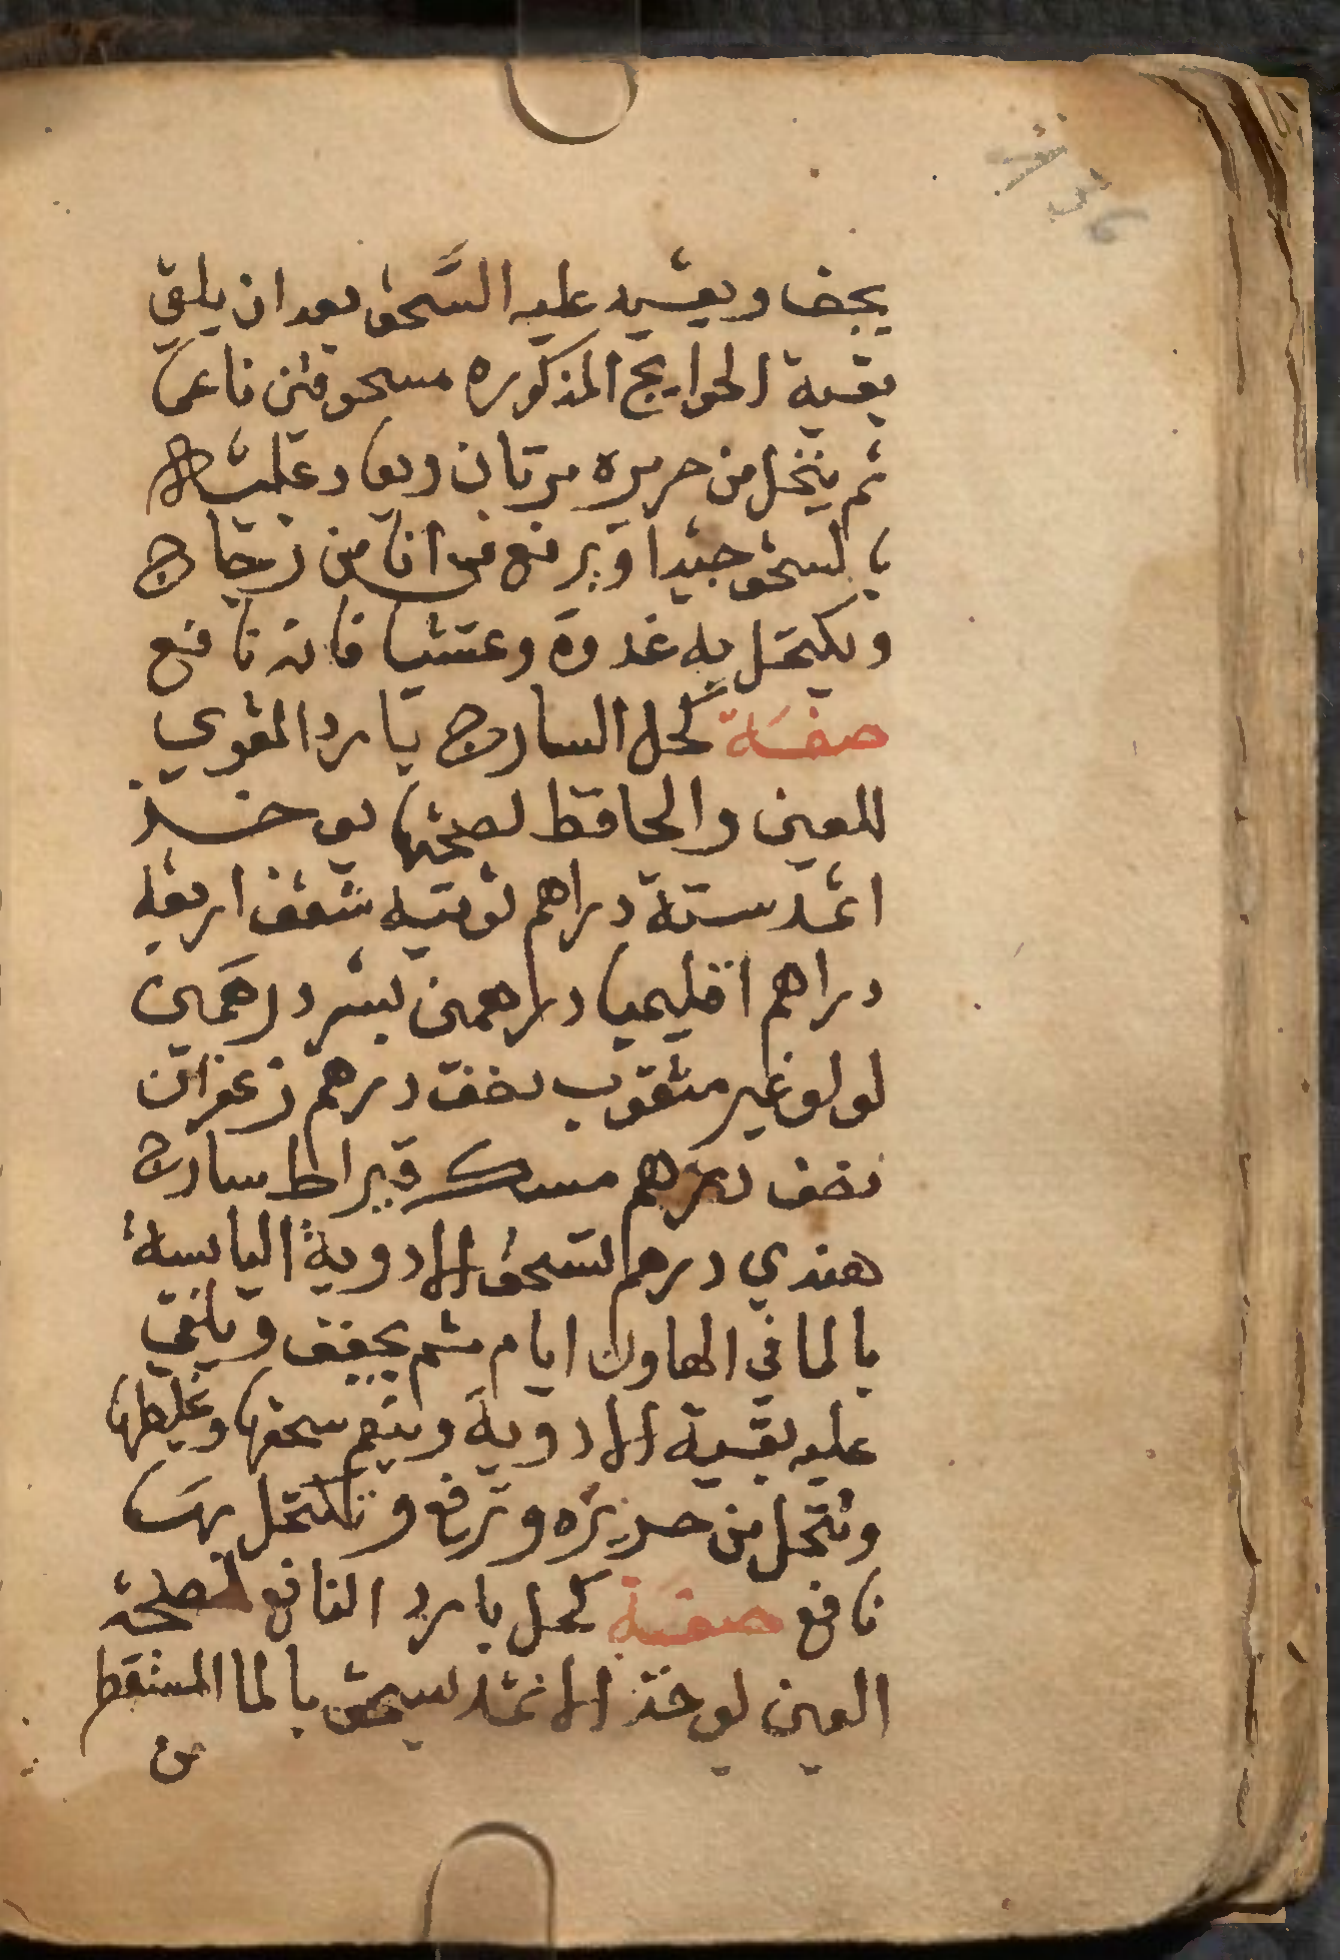 يجف ويعيد عليه السَّحق بعد ان يلقي
بقية الحوايج المذكوره مسحوقين ناعمًا
ثم ينخل من حريره مرتان ويعاد عليها
بالسحق جيدا ويرفع في انا من زجاج
ويكتحل به غدوة وعشيا فانه نافع
صفة كحل السارج بارد المقوي
للعين والحافظ لصحتها يوخذ
اثمد ستة دراهم توتيه شقف اربعة
دراهم اقليميا دراهمين بسر درهمين
لولو غير مثقوب نضف درهم زعفران
نضف درهم مسك قيراط سارج
هندي درهم تسحق الادوية اليابسة
بالما في الهاون ايام ثم يجفف ويلقي
عليه بقية الادوية وينعم سحقها وخلطها
وتنخل من حريره وترفع وتكتحل بها
نافع صفة كحل بارد النافع لصحة
العين يوخذ الاثمد يسحق بالما المستقطر
من